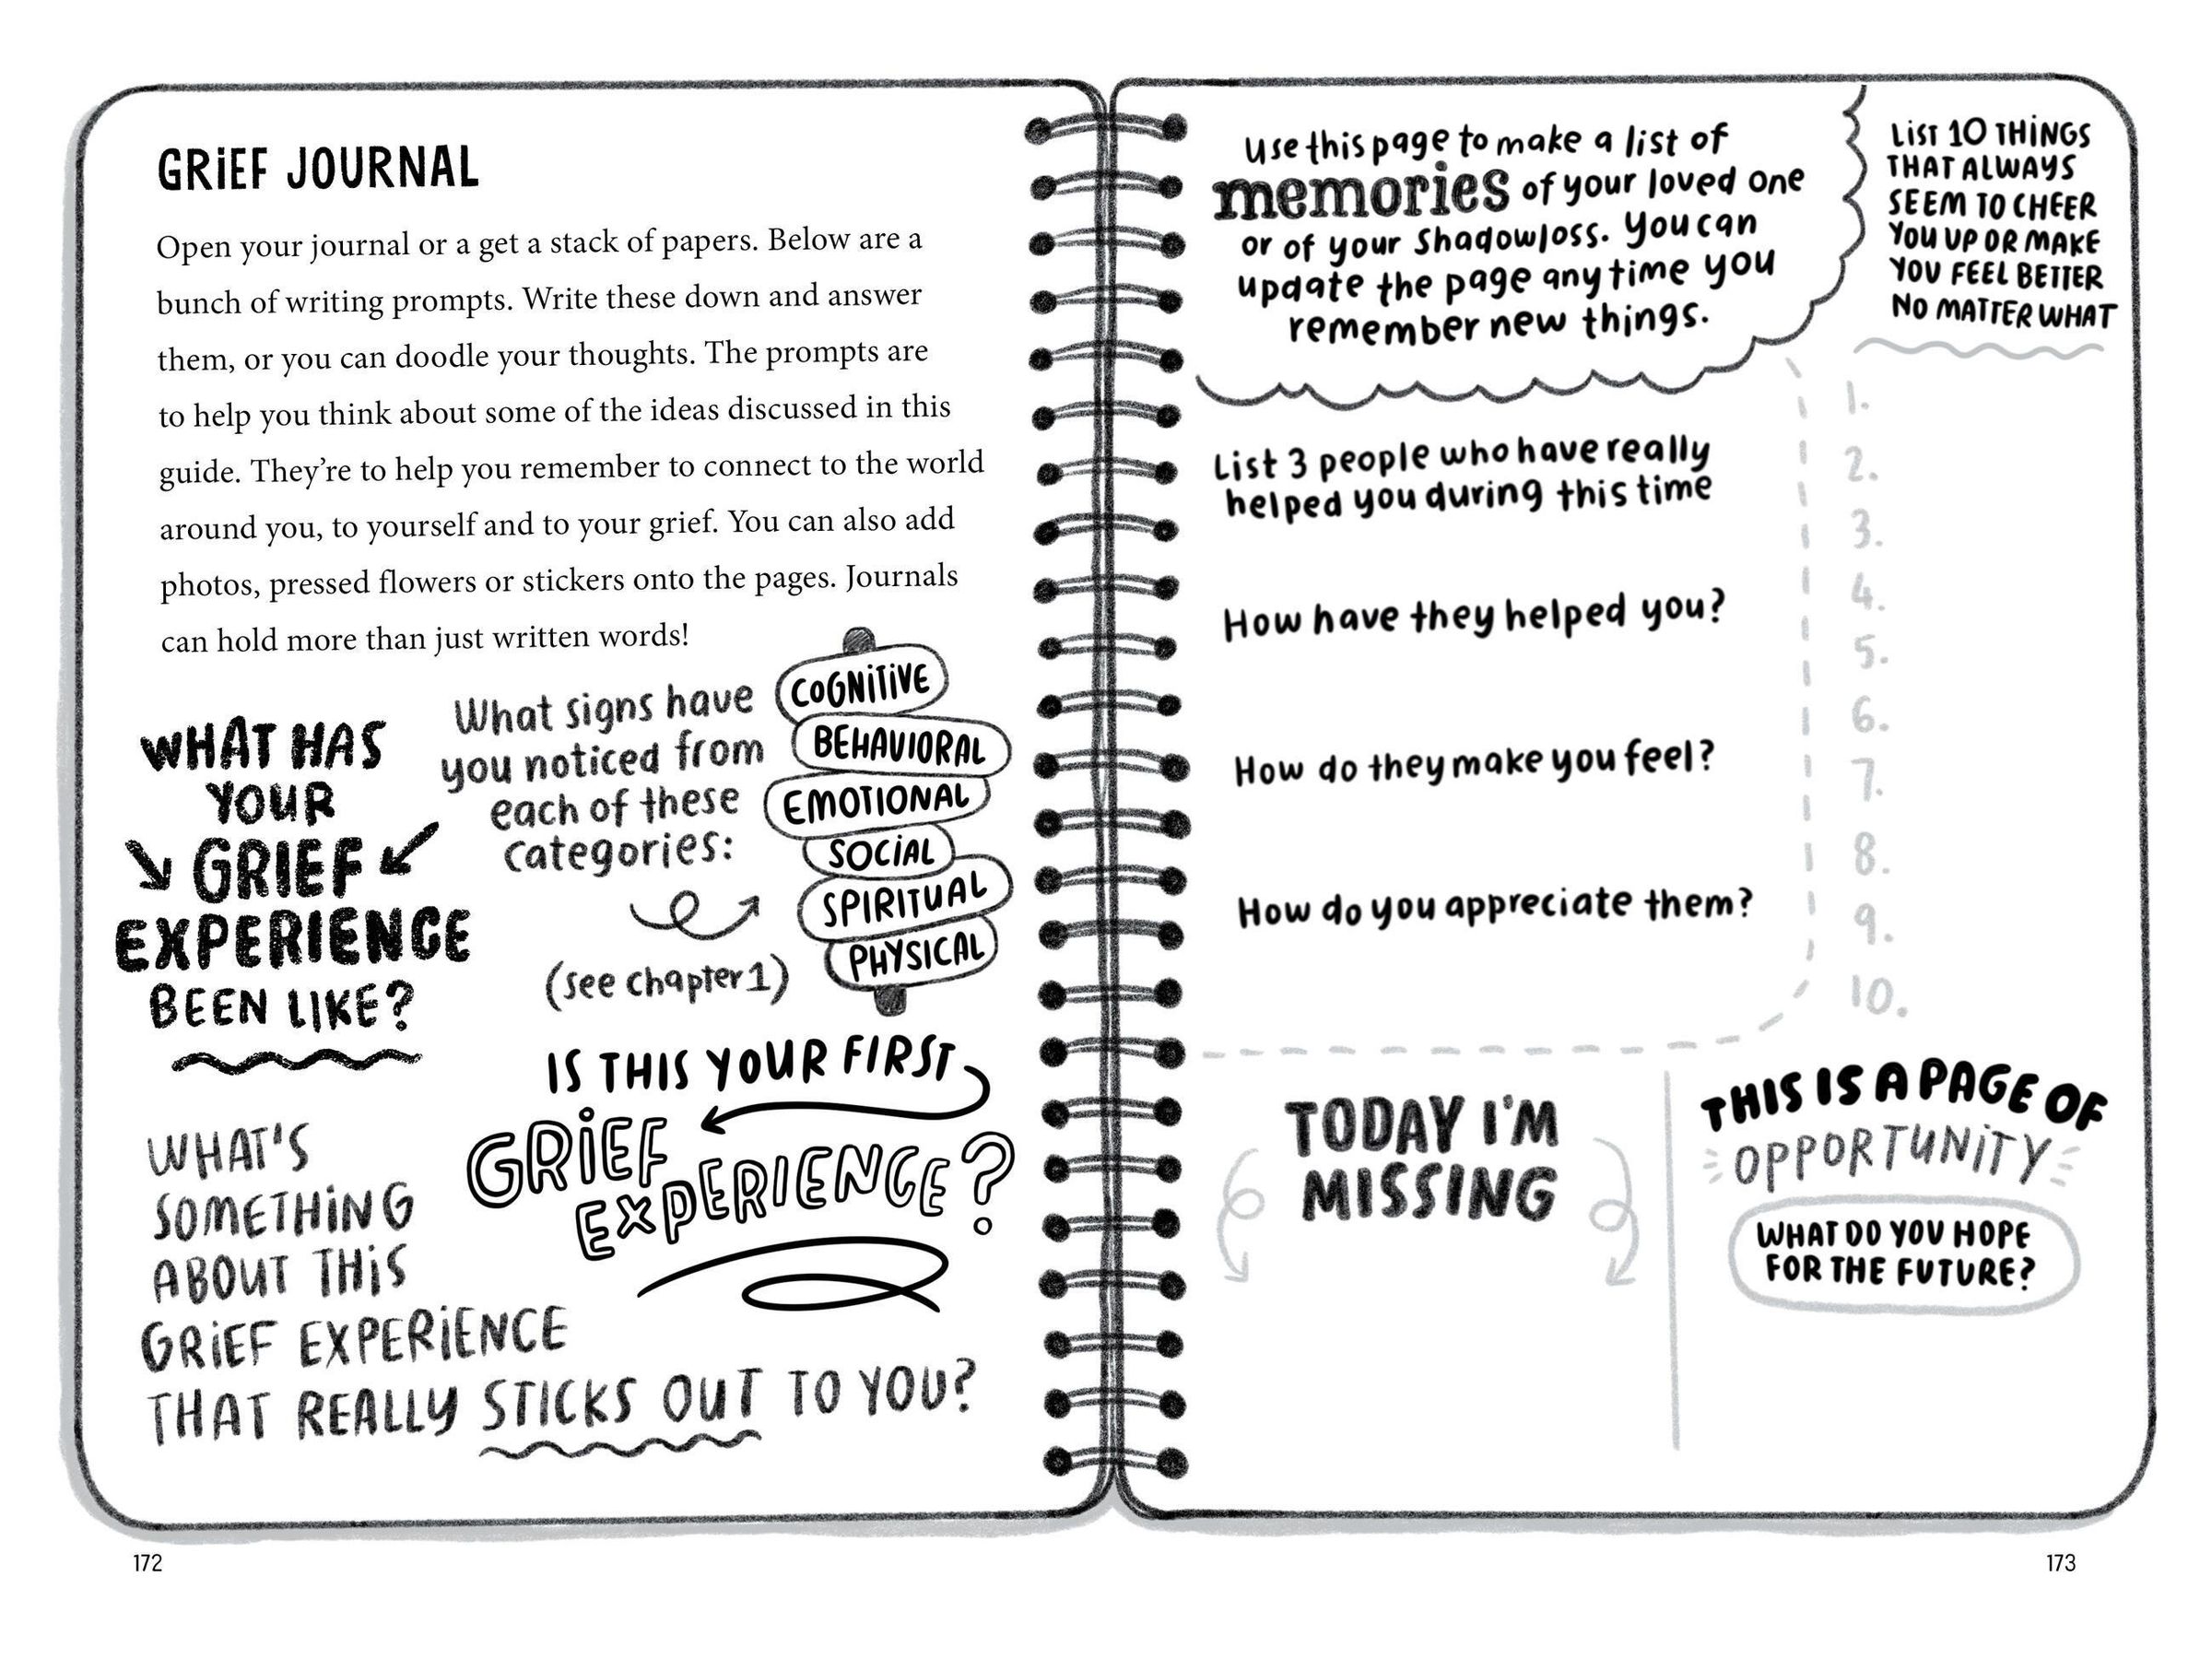 GRiEF JOURNAL
Open your journal or a get a stack of papers. Below are a
bunch of writing prompts. Write these down and answer
them, or you can doodle your thoughts. The prompts are
to help you think about some of the ideas discussed in this
guide. They’re to help you remember to connect to the world
around you, to yourself and to your grief. You can also add
photos, pressed flowers or stickers onto the pages. Journals
can hold more than just written words!
WHAT HAS
YOUR
GRIEF
EXPERIENCE
BEEN LIKE?
What signs have
you noticed from
each of these
categories:
(see chapter 1)
COGNiTiVE
BEHAVIORAL
EMOTIONAL
SOCiAL
SPIRITUAL
PHYSICAL
IS THIS YOUR FIRST
GRiEF
EXPERIENCE?
WHAT'S
SOMETHiNG
ABOUT THiS
GRiEF EXPERiENCE
THAT REALLY STICKS OUT TO YOU?
172
Use this page to make a list of
memories of your loved one
or of your Shadowloss. You can
update the page anytime you
remember new things.
LiST 10 THiNGS
THAT ALWAYS
SEEM TO CHEER
YOU UP OR MAKE
YOU FEEL BETTER
NO MATTER WHAT
1.
2.
3.
4.
5.
6.
7.
8.
9.
10.
List 3 people who have really
helped you during this time
How have they helped you?
How do they make you feel?
How do you appreciate them?
TODAY I'M
MISSING
THIS IS A PAGE OF
OPPORTUNiTY
WHAT DO YOU HOPE
FOR THE FUTURE?
173